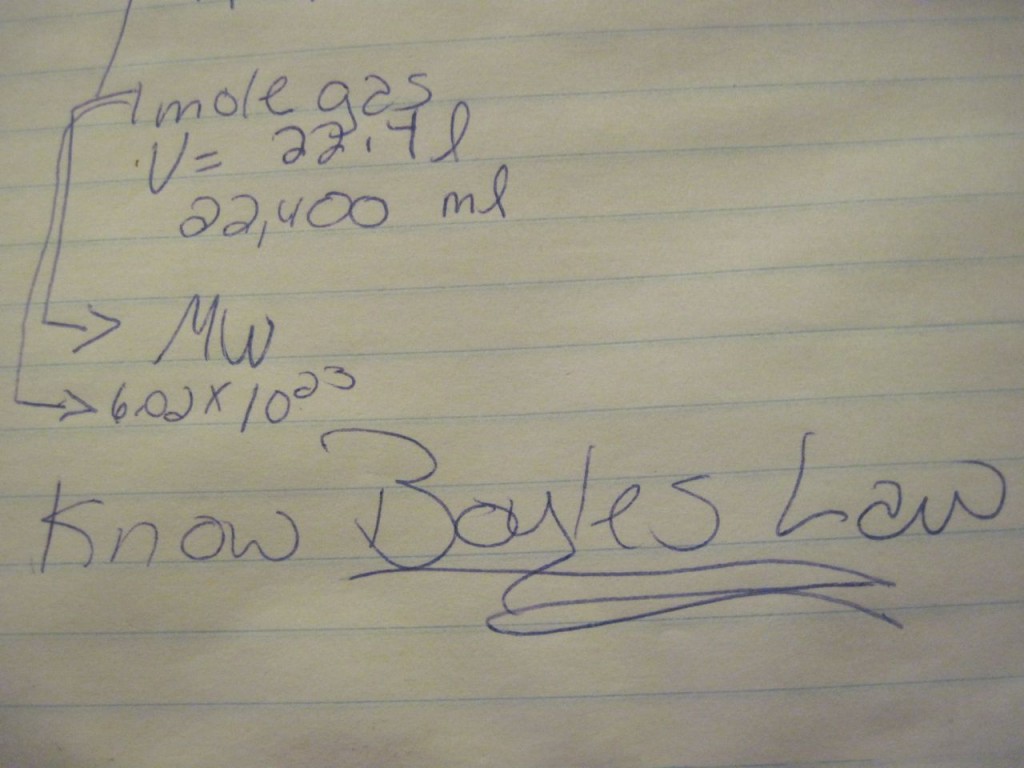 1 mole gas
V= 22.4 l
22,400 ml
MW
6.02 x 10²³
Know Boyles Law